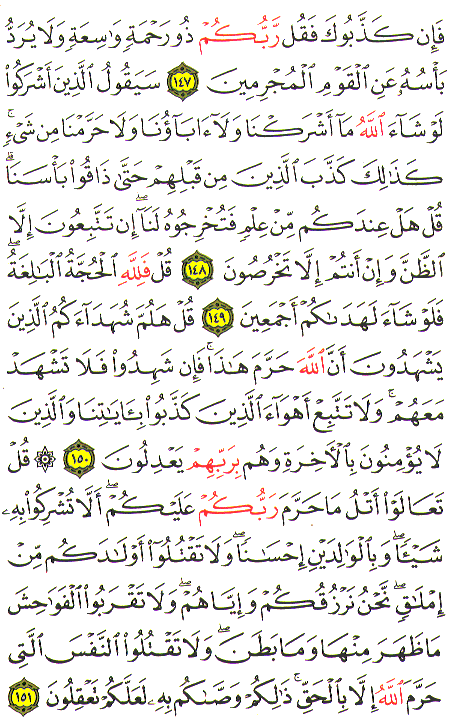 فَإِن كَذَّبُوكَ فَقُل رَّبُّكُمْ ذُو رَحْمَةٍ وَٰسِعَةٍ وَلَا يُرَدُّ
بَأْسُهُۥ عَنِ ٱلْقَوْمِ ٱلْمُجْرِمِينَ ١٤٧ سَيَقُولُ ٱلَّذِينَ أَشْرَكُوا۟
لَوْ شَآءَ ٱللَّهُ مَآ أَشْرَكْنَا وَلَآ ءَابَآؤُنَا وَلَا حَرَّمْنَا مِن شَىْءٍ ۚ
كَذَٰلِكَ كَذَّبَ ٱلَّذِينَ مِن قَبْلِهِمْ حَتَّىٰ ذَاقُوا۟ بَأْسَنَا ۗ
قُلْ هَلْ عِندَكُم مِّنْ عِلْمٍ فَتُخْرِجُوهُ لَنَآ ۖ إِن تَتَّبِعُونَ إِلَّا
ٱلظَّنَّ وَإِنْ أَنتُمْ إِلَّا تَخْرُصُونَ ١٤٨ قُلْ فَلِلَّهِ ٱلْحُجَّةُ ٱلْبَٰلِغَةُ ۖ
فَلَوْ شَآءَ لَهَدَىٰكُمْ أَجْمَعِينَ ١٤٩ قُلْ هَلُمَّ شُهَدَآءَكُمُ ٱلَّذِينَ
يَشْهَدُونَ أَنَّ ٱللَّهَ حَرَّمَ هَٰذَا ۖ فَإِن شَهِدُوا۟ فَلَا تَشْهَدْ
مَعَهُمْ ۚ وَلَا تَتَّبِعْ أَهْوَآءَ ٱلَّذِينَ كَذَّبُوا۟ بِـَٔايَٰتِنَا وَٱلَّذِينَ
لَا يُؤْمِنُونَ بِٱلْـَٔاخِرَةِ وَهُم بِرَبِّهِمْ يَعْدِلُونَ ١٥٠ ۞ قُلْ
تَعَالَوْا۟ أَتْلُ مَا حَرَّمَ رَبُّكُمْ عَلَيْكُمْ ۖ أَلَّا تُشْرِكُوا۟ بِهِۦ
شَيْـًٔا ۖ وَبِٱلْوَٰلِدَيْنِ إِحْسَٰنًا ۖ وَلَا تَقْتُلُوٓا۟ أَوْلَٰدَكُم مِّنْ
إِمْلَٰقٍ ۖ نَّحْنُ نَرْزُقُكُمْ وَإِيَّاهُمْ ۖ وَلَا تَقْرَبُوا۟ ٱلْفَوَٰحِشَ
مَا ظَهَرَ مِنْهَا وَمَا بَطَنَ ۖ وَلَا تَقْتُلُوا۟ ٱلنَّفْسَ ٱلَّتِى
حَرَّمَ ٱللَّهُ إِلَّا بِٱلْحَقِّ ۚ ذَٰلِكُمْ وَصَّىٰكُم بِهِۦ لَعَلَّكُمْ تَعْقِلُونَ ١٥١